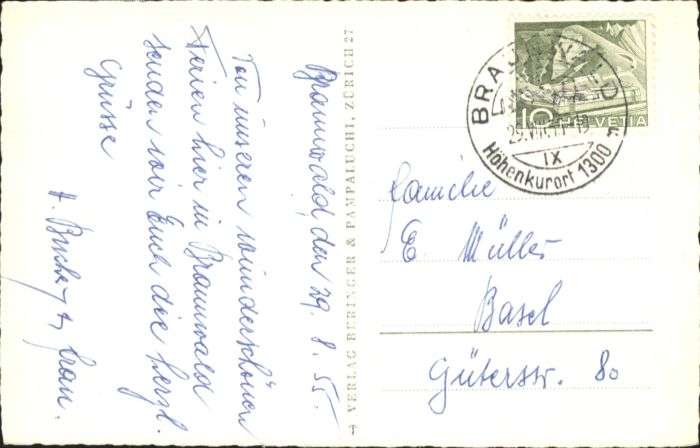 Braunwald, den 29. 8. 55.
Von unseren wunderschönen
Ferien hier in Braunwald
senden wir Euch die herzl.
Grüsse
& Frau.
VERLAG BURINGER & PAMPALUCHI, ZÜRICH 27
10 HELVETIA
BRAUNWALD
IX
Höhenkurort 1300 m
Familie
E. Müller
Basel
Güterstr. 80